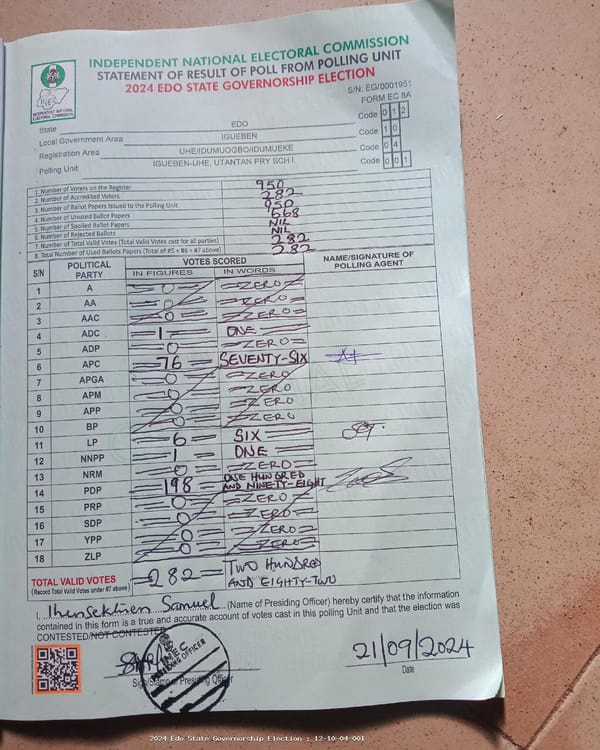 INDEPENDENT NATIONAL ELECTORAL COMMISSION
STATEMENT OF RESULT OF POLL FROM POLLING UNIT
2024 EDO STATE GOVERNORSHIP ELECTION
INEC
INDEPENDENT NATIONAL ELECTORAL COMMISSION
S/N. EG/0001951
FORM EC 8A
State EDO Code 0 1 2
Local Government Area IGUEBEN Code 1 0
Registration Area UHE/IDUMUOGBO/IDUMUEKE Code 0 4
Polling Unit IGUEBEN-UHE, UTANTAN PRY SCH I Code 0 0 1
1. Number of Voters on the Register 950
2. Number of Accredited Voters 282
3. Number of Ballot Papers Issued to the Polling Unit 950
4. Number of Unused Ballot Papers 668
5. Number of Spoiled Ballot Papers NIL
6. Number of Rejected Ballots NIL
7. Number of Total Valid Votes (Total Valid Votes cast for all parties) 282
8. Total Number of Used Ballot Papers (Total of #5 + #6 + #7 above) 282
S/N POLITICAL PARTY VOTES SCORED NAME/SIGNATURE OF POLLING AGENT
IN FIGURES IN WORDS
1 A 0 ZERO
2 AA 0 ZERO
3 AAC 0 ZERO
4 ADC 1 ONE
5 ADP 0 ZERO
6 APC 76 SEVENTY-SIX
7 APGA 0 ZERO
8 APM 0 ZERO
9 APP 0 ZERO
10 BP 0 ZERO
11 LP 6 SIX
12 NNPP 1 ONE
13 NRM 0 ZERO
14 PDP 198 ONE HUNDRED AND NINETY-EIGHT
15 PRP 0 ZERO
16 SDP 0 ZERO
17 YPP 0 ZERO
18 ZLP 0 ZERO
TOTAL VALID VOTES 282 TWO HUNDRED AND EIGHTY-TWO
(Record Total Valid Votes under #7 above)
I, Samuel (Name of Presiding Officer) hereby certify that the information
contained in this form is a true and accurate account of votes cast in this polling Unit and that the election was
CONTESTED/NOT CONTESTED
INEC
PRESIDING OFFICER
Sign/Stamp of Presiding Officer
21/09/2024
Date
2024 Edo State Governorship Election : 12-10-04-001